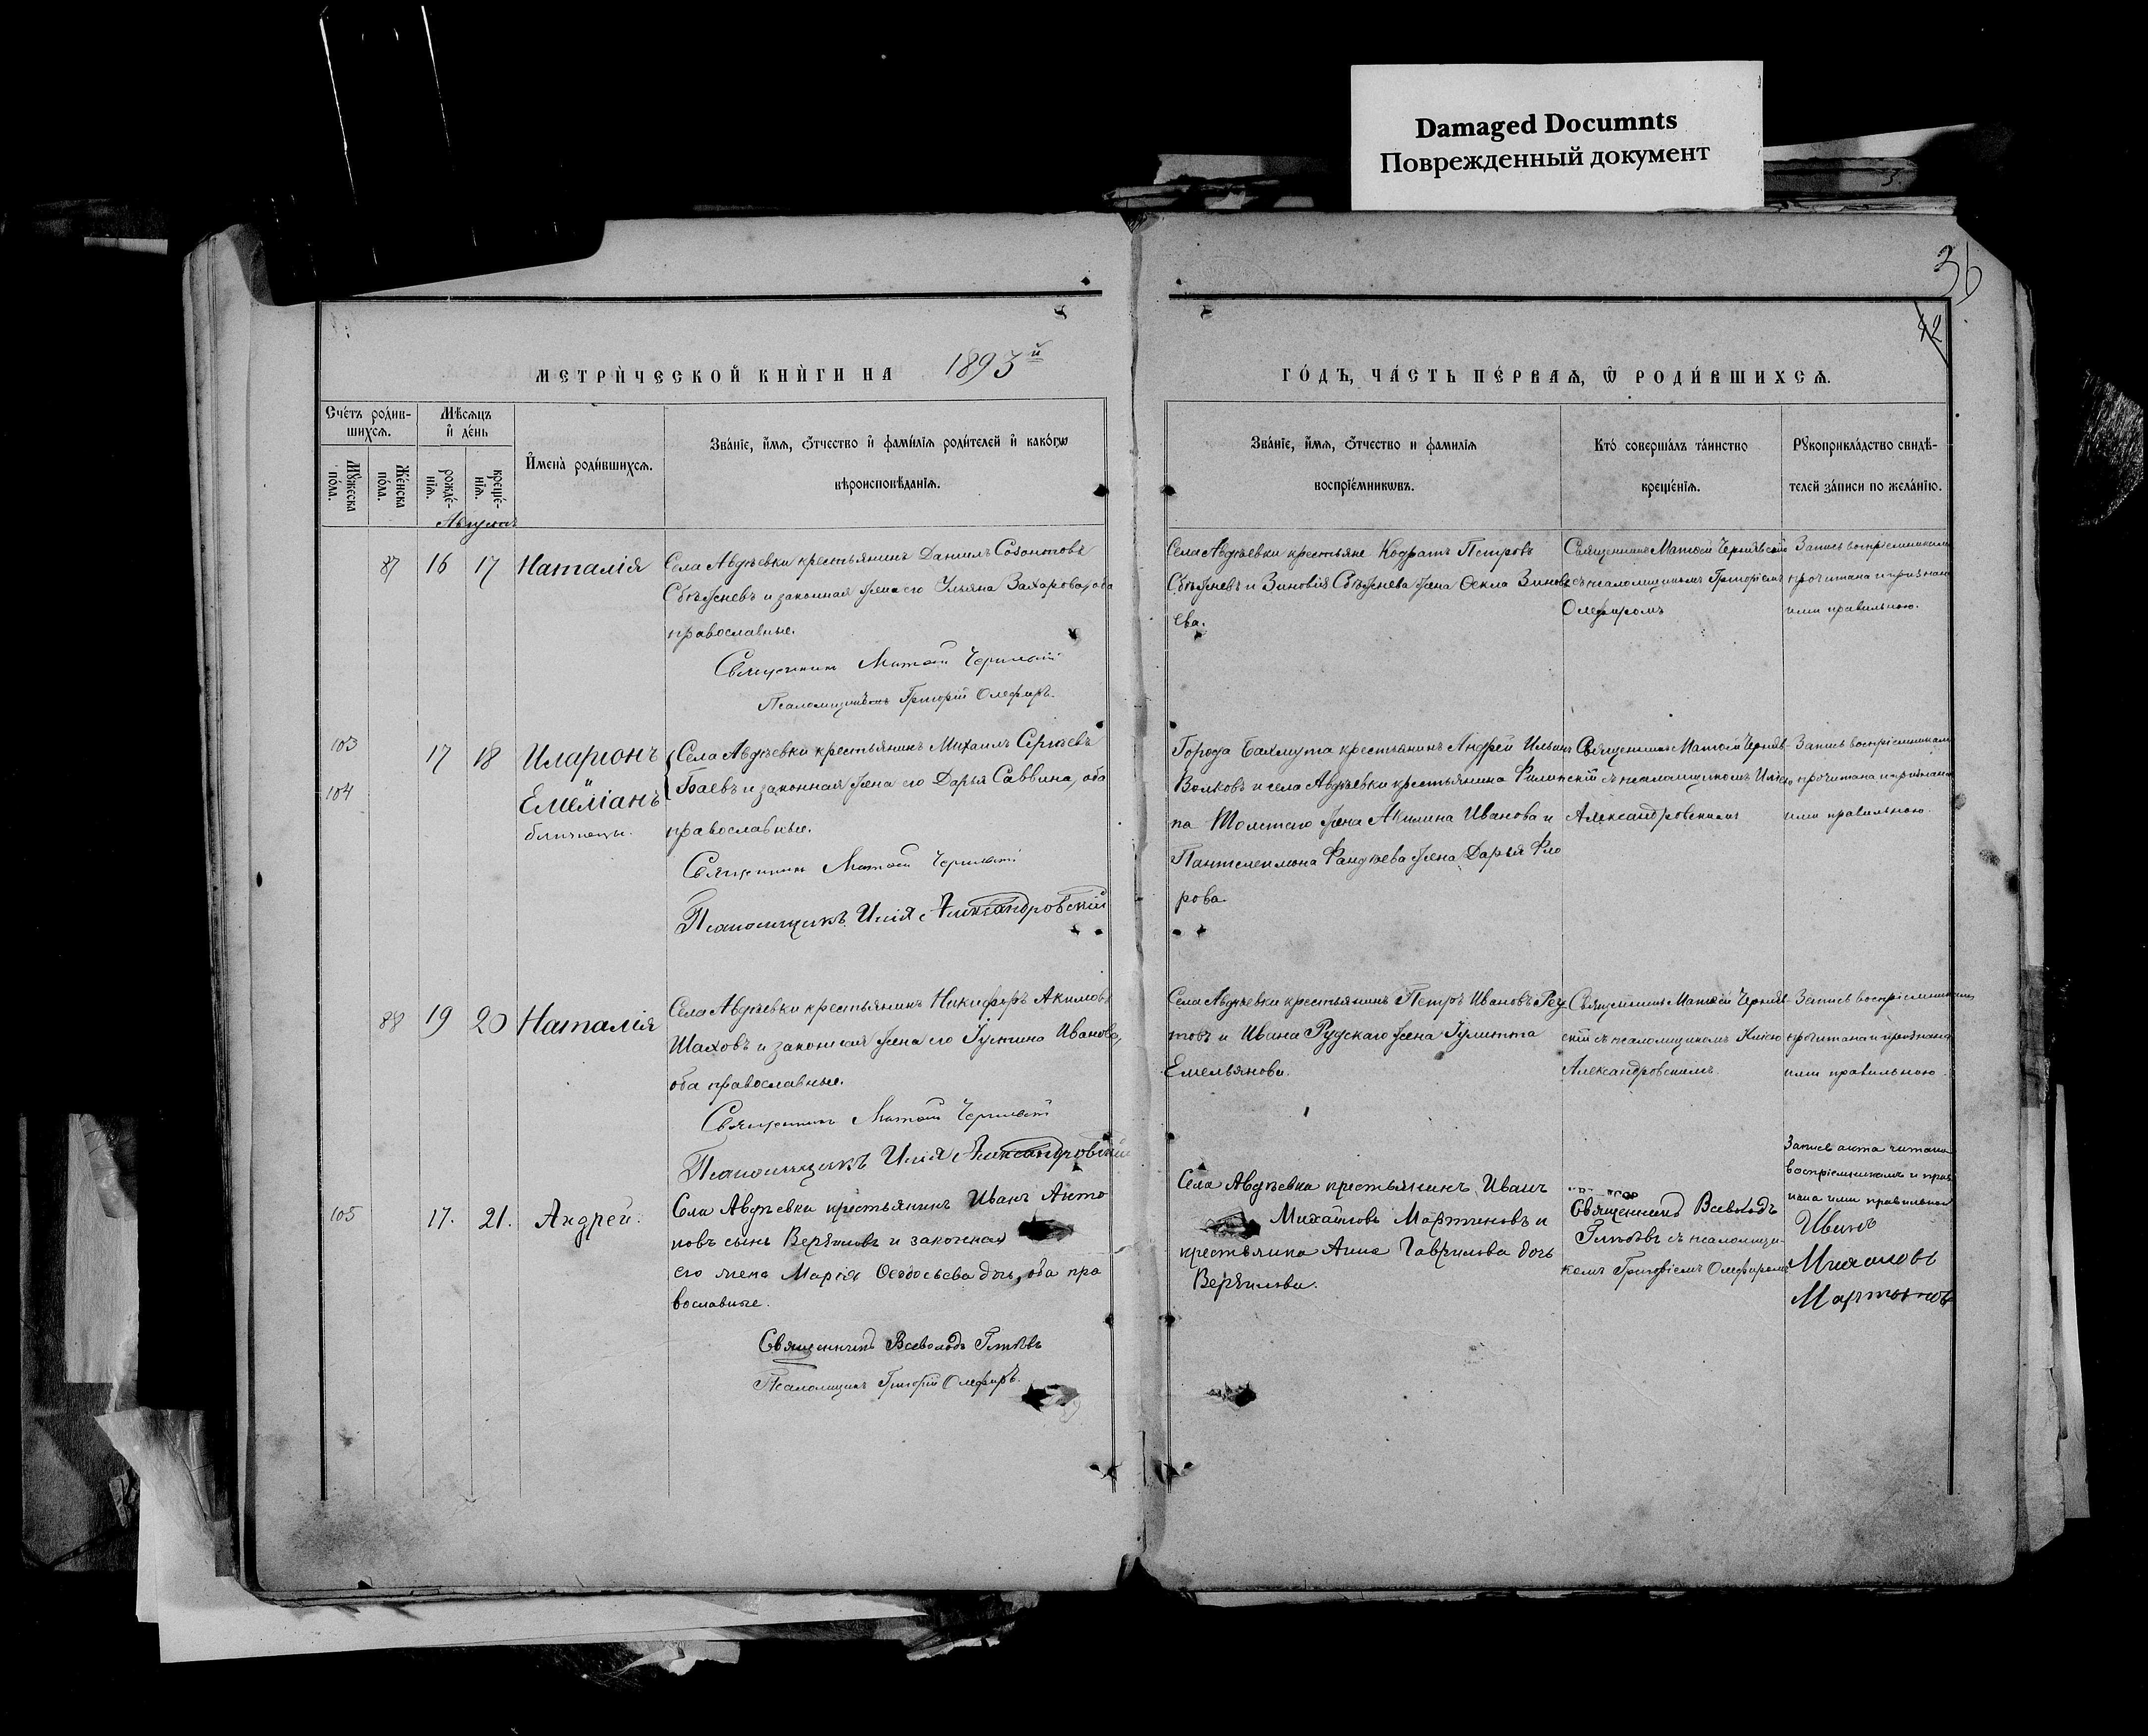 Damaged Documnts
Поврежденный документ
36
42
МЕТРИ́ЧЕСКОЙ КНИ́ГИ НА 1893й
ГО́ДЪ, ЧА́СТЬ ПЕ́РВАЯ, Ѿ РОДИ́ВШИХСЯ.
Сче́тъ роди́в-
шихся.
Мѣсяцъ
и҆ де́нь
Мꙋжеска
по́ла.
Же́нска
по́ла.
рожде́-
нія.
креще́-
нія.
И҆мена̀ роди́вшихся.
Зва́ніе, и҆́мя, ѻ҆́тчество и҆ фами́лія роди́телей и҆ како́гѡ
вѣроисповѣ́данія.
Зва́ніе, и҆́мя, ѻ҆́тчество и фамилія
воспріе́мникѡвъ.
Кто́ соверша́лъ та́инство
креще́нія.
Рꙋкоприкла́дство свидѣ́-
телей за́писи по жела́нію.
Августъ
87 16 17 Наталія
Села Авдѣевки крестьянинъ Даніилъ Созонтовъ
Сбѣжневъ и законная жена его Ульяна Захарова, оба
православные.
Священникъ Матѳей Чернявскій
Псаломщикъ Григорій Олефиръ.
Села Авдѣевки крестьяне Кодратъ Петровъ
Сбѣжневъ и Зиновія Сбѣжнева жена Ѳекла Зиновь
ева.
Священникъ Матѳей Чернявскій
съ псаломщикомъ Григоріемъ
Олефиромъ
Запись воспріемниками
прочитана и признана
ими правильною.
103
104
17 18 Иларіонъ
и
Емеліанъ
близнецы.
Села Авдѣевки крестьянинъ Михаилъ Сергѣевъ
Баевъ и законная жена его Дарья Саввина, оба
православные.
Священникъ Матѳей Чернявскій
Псаломщикъ Илія Александровскій
Города Бахмута крестьянинъ Андрей Ильинъ
Волковъ и села Авдѣевки крестьянина Филип
па Толстаго жена Акилина Иванова и
Пантелеимона Фандѣева жена Дарья Фло
рова.
Священникъ Матѳей Черняв-
скій съ псаломщикомъ Иліею
Александровскимъ
Запись воспріемниками
прочитана и признана
ими правильною.
88 19 20 Наталія
Села Авдѣевки крестьянинъ Никифоръ Акимовъ
Шаховъ и законная жена его Іустина Иванова,
оба православные.
Священникъ Матѳей Чернявскій
Псаломщикъ Илія Александровскій
Села Авдѣевки крестьянинъ Петръ Ивановъ Реу
товъ и Ивана Рудскаго жена Іулитта
Емельянова.
Священникъ Матѳей Черняв-
скій съ псаломщикомъ Иліею
Александровскимъ.
Запись воспріемниками
прочитана и признана
ими правильною
105 17. 21. Андрей.
Села Авдѣевки крестьянинъ Иванъ Анто
новъ сынъ и законная
его жена Марія Ѳеодосьева дочь, оба пра
вославные.
Священникъ Всеволодъ
Псаломщикъ Григорій Олефиръ.
Села Авдѣевки крестьянинъ Иванъ
Михайловъ Мартыновъ и
крестьянка Анна Гаврилова дочь
Священникъ Всеволодъ
съ псаломщи-
комъ Григоріемъ Олефиромъ
Запись акта читана
воспріемникомъ и приз
нана ими правильной
Иванъ
Михаиловъ
Мартыновъ